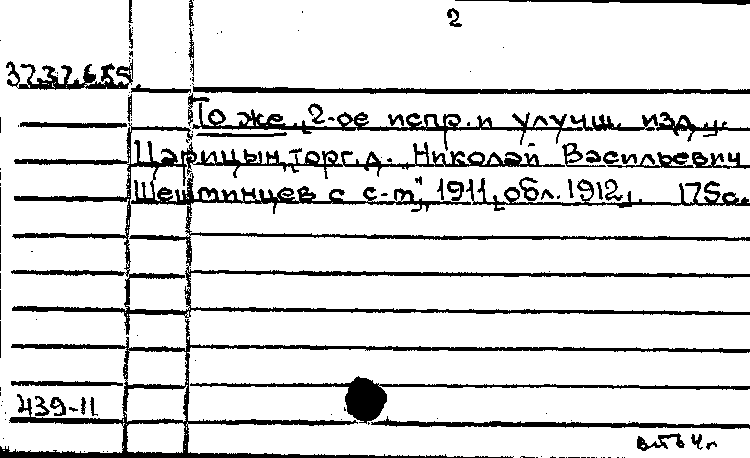 2
37.37.655.
То же, 2-ое испр. и улучш. изд.,
Царицын, торг. д. „Николай Васильевич
Шешминцев с с-м", 1911, [обл. 1912]. 175с.
439-11